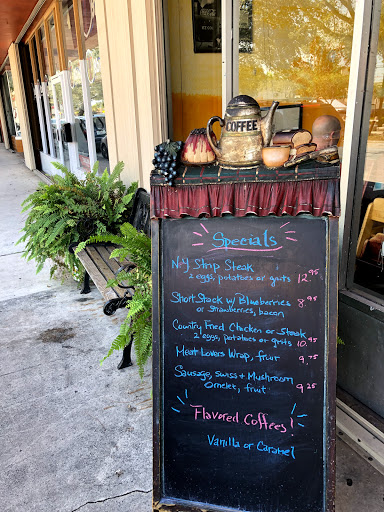 COFFEE
Specials
N.Y Strip Steak 12.95
2 eggs, potatoes or grits
Short Stack w/ Blueberries 8.95
or Strawberries, bacon
Country Fried Chicken or Steak
2 eggs, potatoes or grits 10.95
Meat Lovers Wrap, fruit 9.75
Sausage, Swiss + Mushroom
Omelet, fruit 9.25
Flavored Coffees!
Vanilla or Caramel